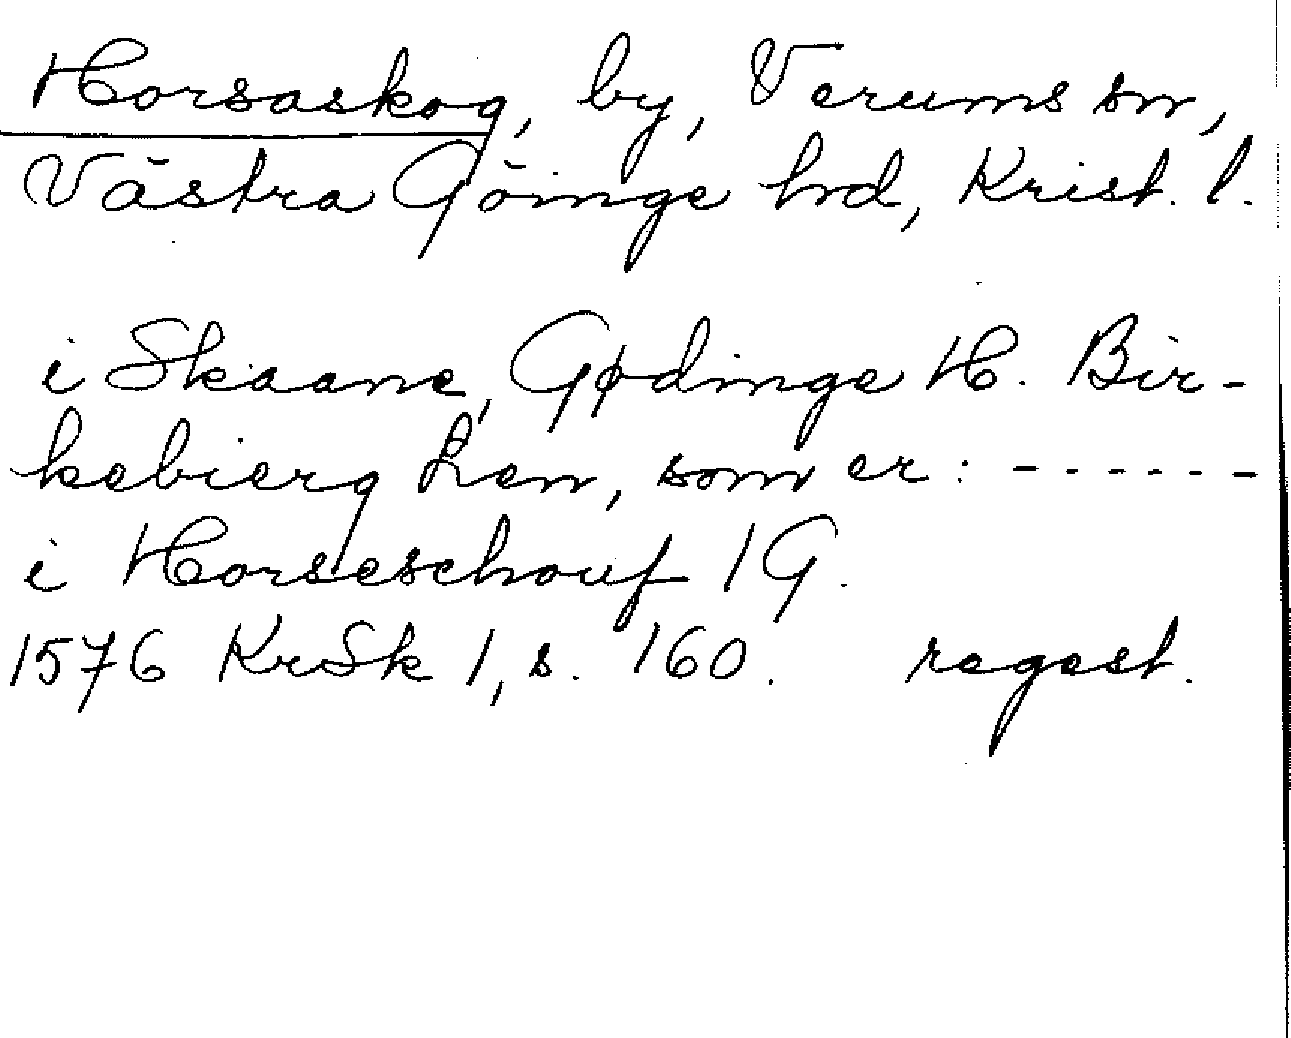 Horsaskog, by, Verums sn,
Västra Göinge hd, Krist. l.
i Skaane, Gødinge H. Bir-
kebierg Len, som er: ------
i Horseschouf 1 G.
1576 KrSk 1, s. 160. regest.